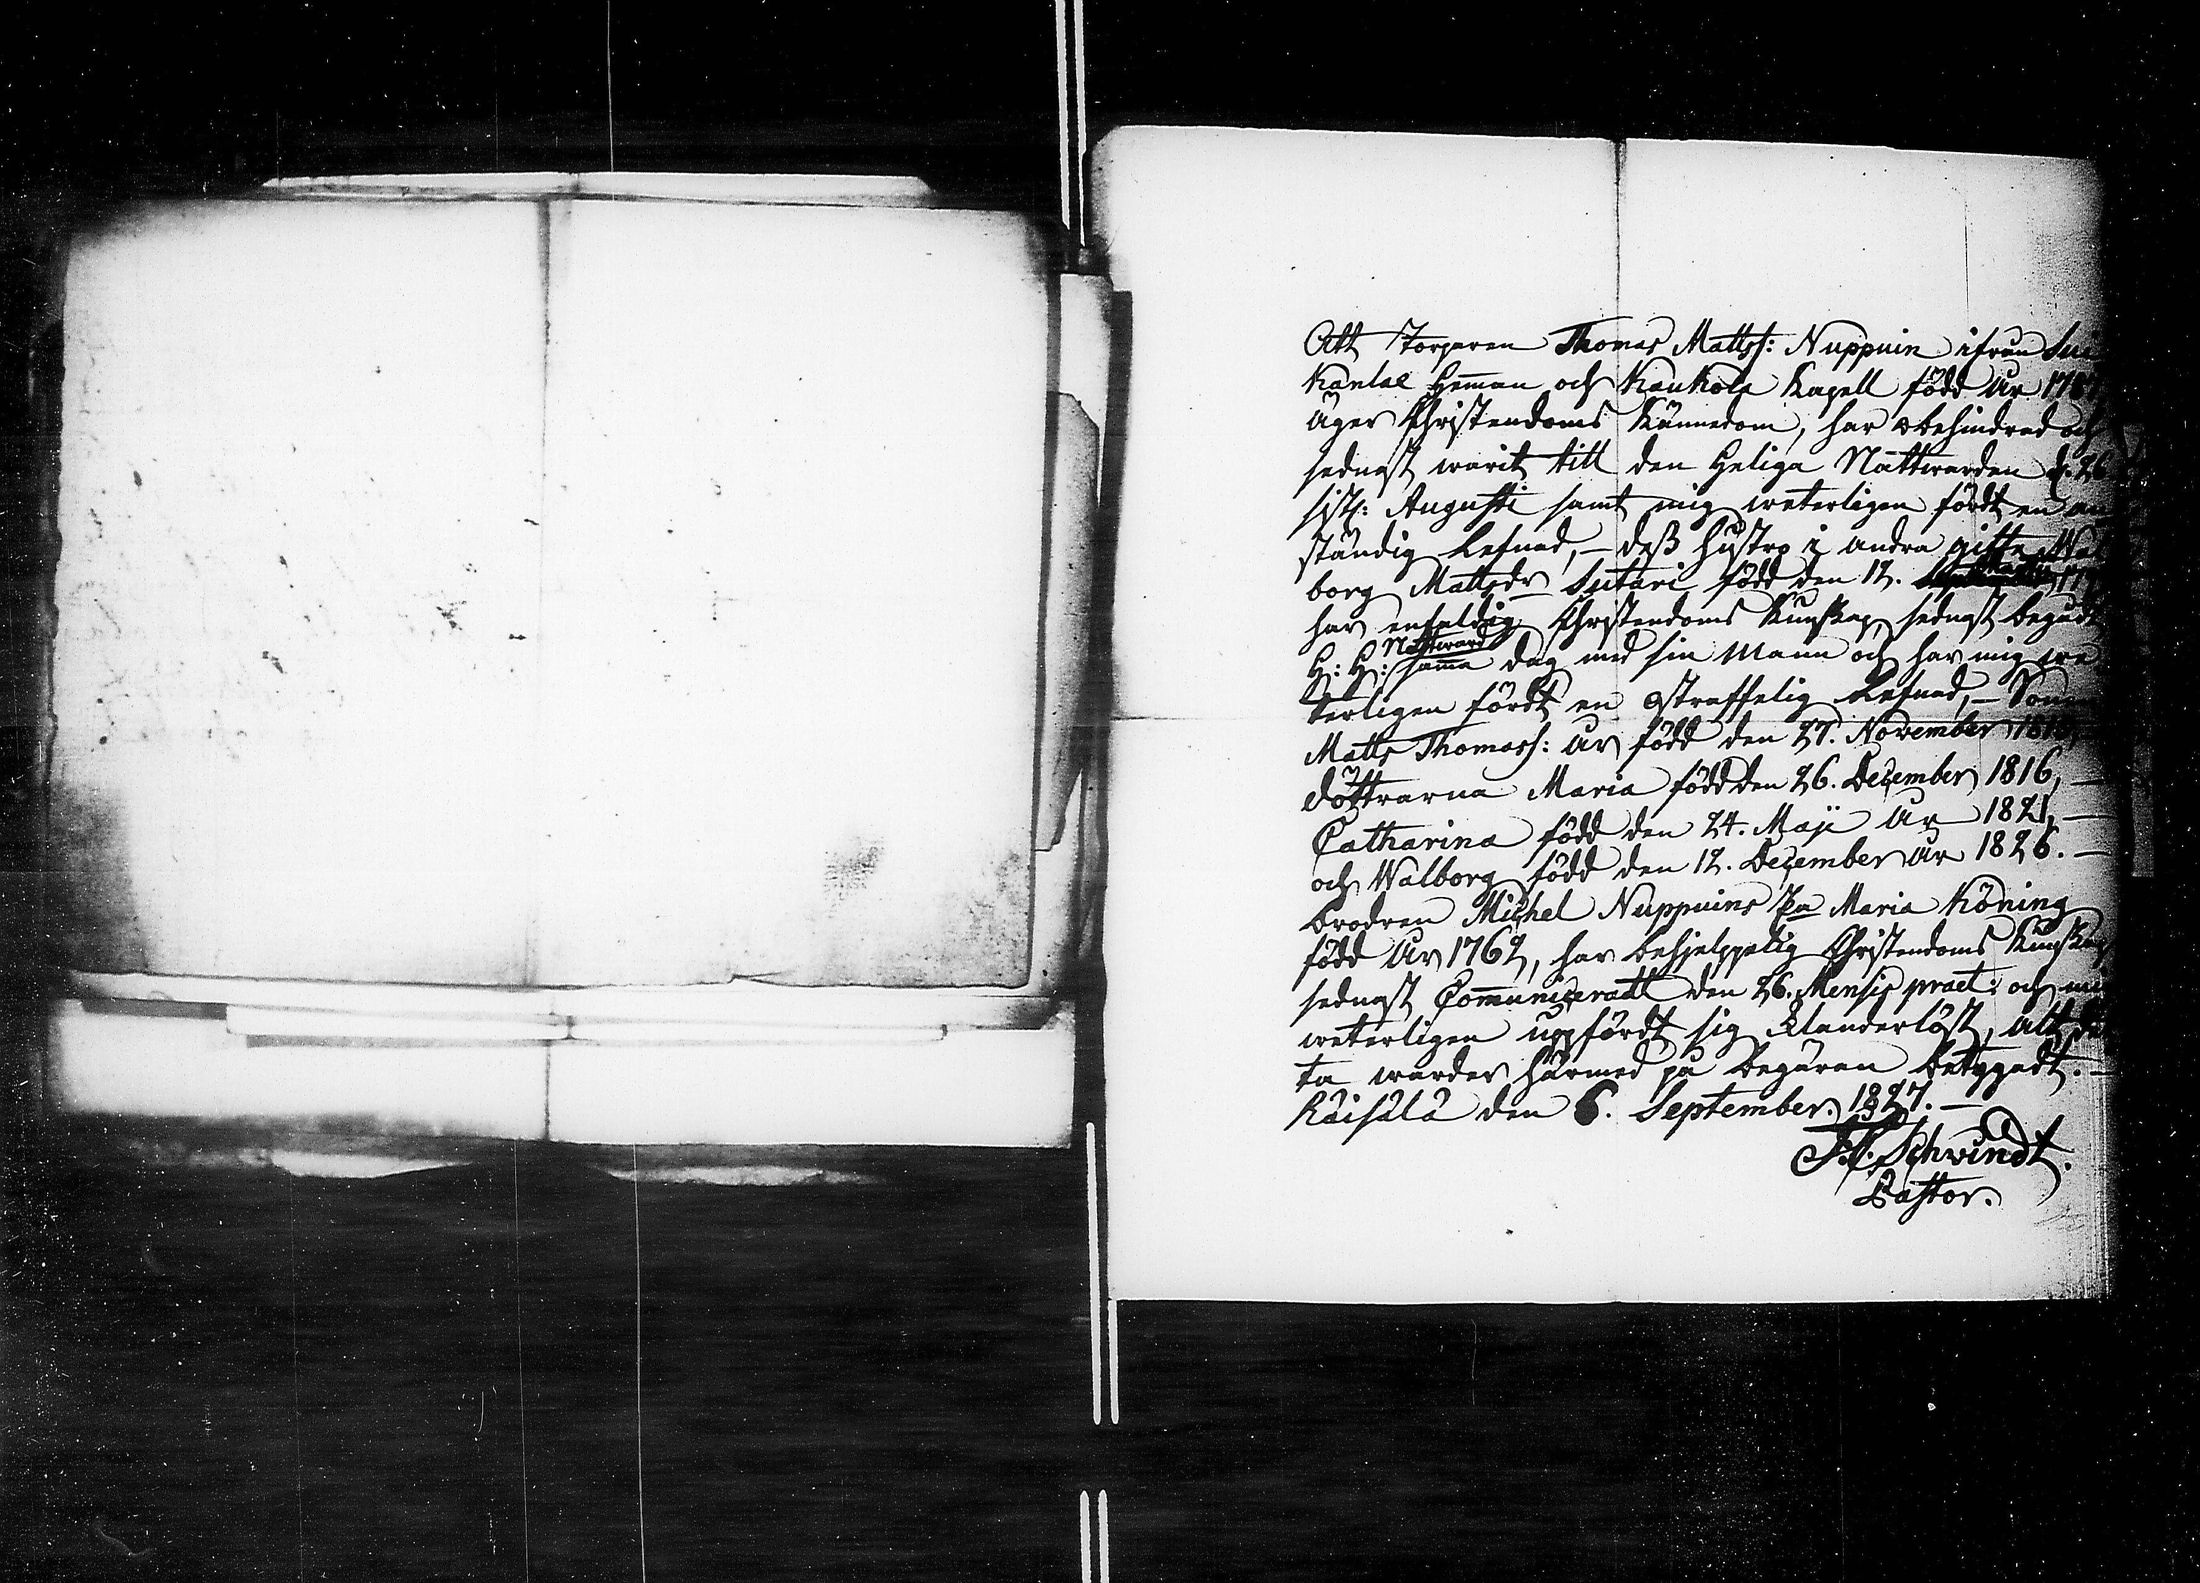 Att Torparen Thomas Mattss: Nuppuin ifrån
Kanlae Heman och Kaukola Kapell född År
äger Christendoms Kännedom, har obehindrad och
sednast warit till den Heliga Nattwarden d. 26
sistl: Augusti samt mig weterligen fördt en an
ständig Lefnad, – dess hustro i andra gifte Wal
borg Mattsdr Sutari född den 12.
har enfaldig Christendoms Kunskap, sednast begådt
H: H: Nattward samma dag med sin Mann och har mig we
terligen fördt en ostraffelig Lefnad, – Sonen
Matts Thomass: är född den 27. November
döttrarna Maria född den 26. December 1816, –
Catharina född den 24. Maji År 1821, –
och Walborg född den 12. December År 1826. –
brodren Michel Nuppuins Ea Maria Köning
född År 1762, har behjelppelig Christendoms Kunskap
sednast Communiceradt den 26. Mensis praet: och mig
weterligen uppfördt sig Klanderlöst, alt det
ta warder härmed på begäran betygadt. –
Räisälä den 6. September. 1827. –
Schvindt.
Pastor.